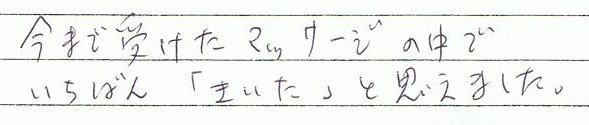 今まで受けたマッサージの中で
いちばん「きいた」と思えました。